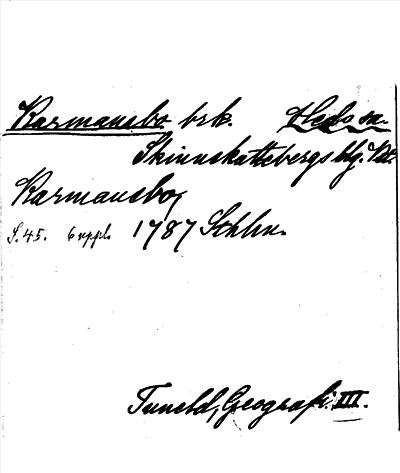 Karmansbo brk. Heds sn.
Skinnskattebergs blg. Vstm.
Karmansbo,
S. 45. 6 uppl. 1787 Sthlm.
Tuneld, Geografi. III.